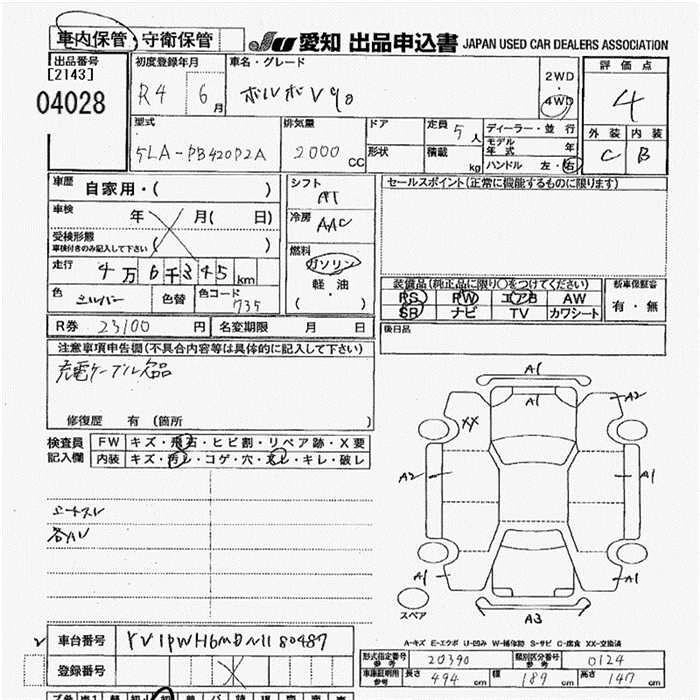 車内保管・守衛保管
JU 愛知 出品申込書 JAPAN USED CAR DEALERS ASSOCIATION
出品番号
[2143]
04028
初度登録年月
R4 6月
車名・グレード
ボルボV90
2WD
・
4WD
評価点
4
外装 内装
C B
型式
5LA-PB420P2A
排気量
2000 CC
ドア
形状
定員 5人
積載 kg
ディーラー・並行
モデル年式 年
ハンドル 左・右
車歴
自家用・( )
車検 年 月( 日)
受検形態
車検付きのみ記入して下さい ( )
走行 4万6千345km
色 シルバー 色替 色コード 735
R券 23100円 名変期限 月 日
シフト
AT
冷房
AAC
燃料
ガソリン
軽・油
( )
セールスポイント(正常に機能するものに限ります)
装備品(純正品に限り○をつけてください)
PS PW エアB AW
SR ナビ TV カワシート
新車保証書
有・無
後日品
注意事項申告欄(不具合内容等は具体的に記入して下さい)
充電ケーブル欠品
修復歴 有 (箇所 )
検査員
記入欄
FW キズ・飛石・ヒビ割・リペア跡・X要
内装 キズ・汚レ・コゲ・穴・スレ・キレ・破レ
各AU
A1
A1
A2
XX
A2
A1
A1
A1
A3
スペア
A-キズ E-エクボ U-凹み W-補修跡 S-サビ C-腐食 XX-交換済
車台番号 YV1PWH6MDN1180487
登録番号
形式指定番号
参考
20390
類別区分番号
参考
0124
車庫証明用
参考
長さ 494cm 幅 189cm 高さ 147cm